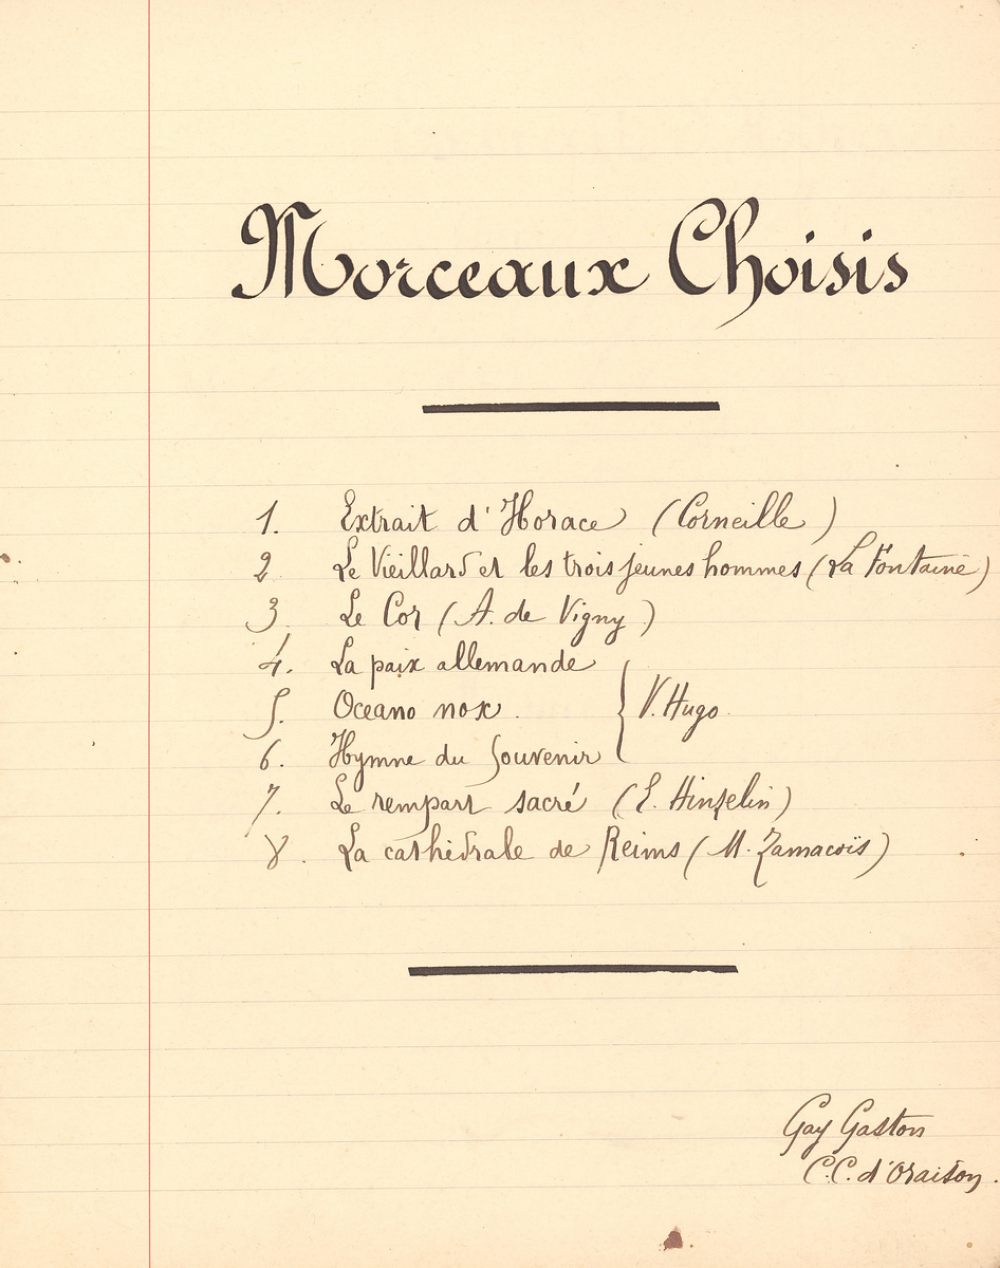 Morceaux Choisis
1. Extrait d'Horace (Corneille)
2 Le Vieillard et les trois jeunes hommes (La Fontaine)
3. Le Cor (A. de Vigny)
4. La paix allemande
5. Oceano nox. } V. Hugo.
6. Hymne du Souvenir
7. Le rempart sacré (E. Hinzelin)
8. La cathédrale de Reims (M. Zamacoïs)
Gay Gaston
C.C. d'Oraison.